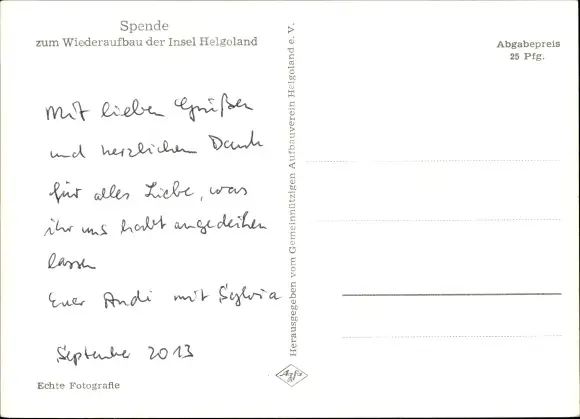 Spende
zum Wiederaufbau der Insel Helgoland
Mit lieben Grüßen
und herzlichem Dank
für alles Liebe, was
ihr uns habt angedeihen
lassen
Euer Andi mit Sylvia
September 2013
Echte Fotografie
Herausgegeben vom Gemeinnützigen Aufbauverein Helgoland e. V.
Agfa
Abgabepreis
25 Pfg.